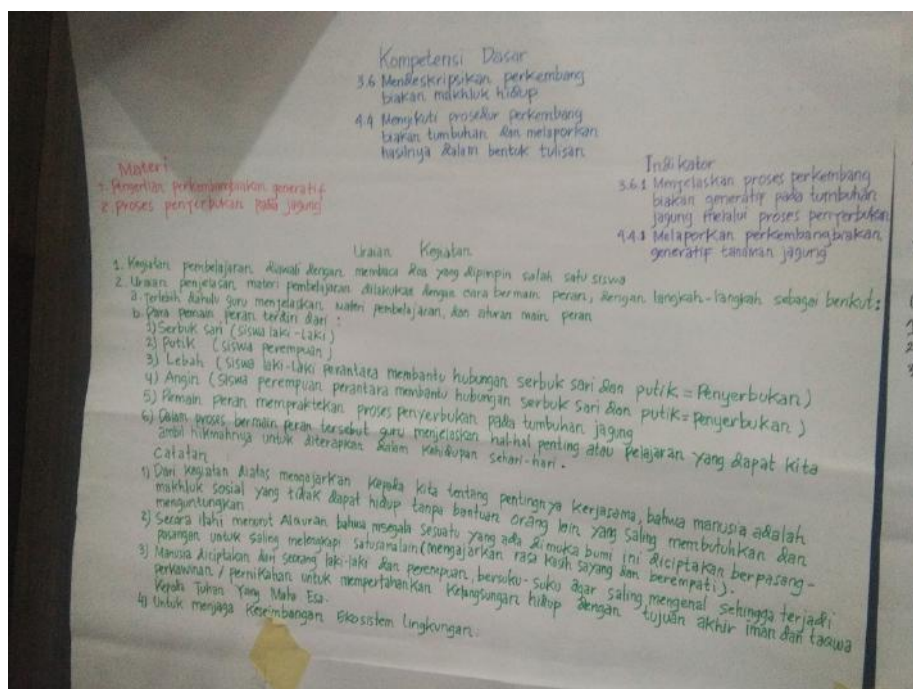 Kompetensi Dasar
3.6 Mendeskripsikan perkembang
biakan makhluk hidup
4.4 Mengikuti prosedur perkembang
biakan tumbuhan dan melaporkan
hasilnya dalam bentuk tulisan
Materi
1. Pengertian perkembangbiakan generatif
2. Proses penyerbukan pada jagung
Indikator
3.6.1 Menjelaskan proses perkembang
biakan generatif pada tumbuhan
jagung melalui proses penyerbukan
4.4.1 Melaporkan perkembangbiakan
generatif tanaman jagung
Uraian Kegiatan
1. Kegiatan pembelajaran diawali dengan membaca doa yang dipimpin salah satu siswa
2. Uraian penjelasan materi pembelajaran dilakukan dengan cara bermain peran, dengan langkah-langkah sebagai berikut:
a. Terlebih dahulu guru menjelaskan materi pembelajaran, dan aturan main peran
b. Para pemain peran terdiri dari :
1) Serbuk sari (siswa laki-laki)
2) Putik (siswa perempuan)
3) Lebah (siswa laki-laki perantara membantu hubungan serbuk sari dan putik = Penyerbukan)
4) Angin (siswa perempuan perantara membantu hubungan serbuk sari dan putik = Penyerbukan)
5) Pemain peran mempraktekan proses penyerbukan pada tumbuhan jagung
6) Dalam proses bermain peran tersebut guru menjelaskan hal-hal penting atau pelajaran yang dapat kita
ambil hikmahnya untuk diterapkan dalam kehidupan sehari-hari.
Catatan
1) Dari kegiatan diatas mengajarkan kepada kita tentang pentingnya kerjasama, bahwa manusia adalah
makhluk sosial yang tidak dapat hidup tanpa bantuan orang lain yang saling membutuhkan dan
menguntungkan
2) Secara ilahi menurut Alquran bahwa segala sesuatu yang ada di muka bumi ini diciptakan berpasang-
pasangan untuk saling melengkapi satusamalain (mengajarkan rasa kasih sayang dan berempati).
3) Manusia diciptakan dari seorang laki-laki dan perempuan, bersuku-suku agar saling mengenal sehingga terjadi
perkawinan / pernikahan untuk mempertahankan kelangsungan hidup dengan tujuan akhir iman dan taqwa
kepada Tuhan Yang Maha Esa.
4) Untuk menjaga keseimbangan Ekosistem Lingkungan.